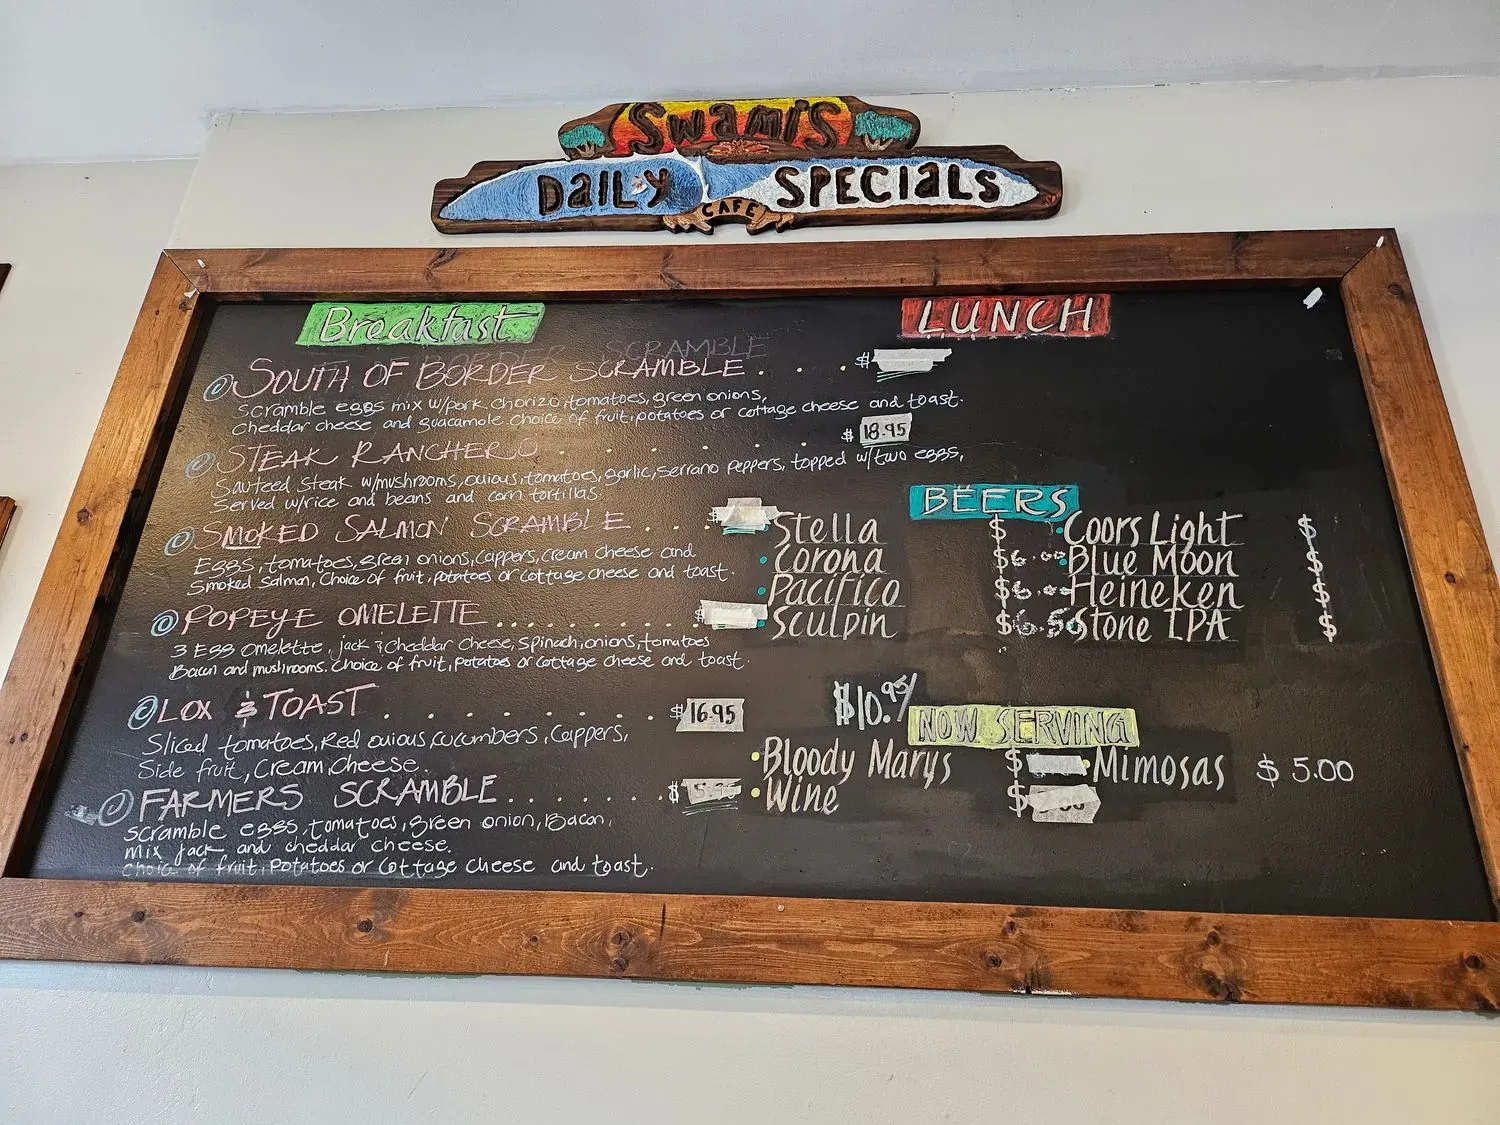 Swami's
DaILy SPECIaLS
CAFE
Breakfast
SOUTH OF BORDER SCRAMBLE . . . $
Scramble eggs mix w/pork chorizo, tomatoes, green onions,
Cheddar cheese and guacamole choice of fruit, potatoes or cottage cheese and toast.
STEAK RANCHERO . . . . . $ 18.95
Sauteed Steak w/mushrooms, ouious, tomatoes, garlic, serrano peppers, topped w/two eggs,
Served w/rice and beans and corn tortillas.
SMOKED SALMON SCRAMBLE . . . $
Eggs, tomatoes, green onions, Cappers, cream cheese and
Smoked salmon, Choice of fruit, potatoes or Cottage cheese and toast.
POPEYE OMELETTE . . . . . . . . . $
3 Egg Omelette, jack & cheddar cheese, spinach, onions, tomatoes
Bacon and mushrooms. Choice of fruit, potatoes or Cottage cheese and toast.
LOX & TOAST . . . . . . . . . $ 16.95
Sliced tomatoes, Red ouious, cucumbers, Cappers,
Side fruit, Cream Cheese.
FARMERS SCRAMBLE . . . . . . . $
Scramble eggs, tomatoes, green onion, Bacon,
mix jack and cheddar cheese.
choice of fruit, Potatoes or Cottage cheese and toast.
LUNCH
BEERS
Stella $
Corona $6.00
Pacifico $6.00
Sculpin $6.50
Coors Light $
Blue Moon $
Heineken $
Stone IPA $
$10.95/
NOW SERVING
Bloody Marys $
Mimosas $ 5.00
Wine $